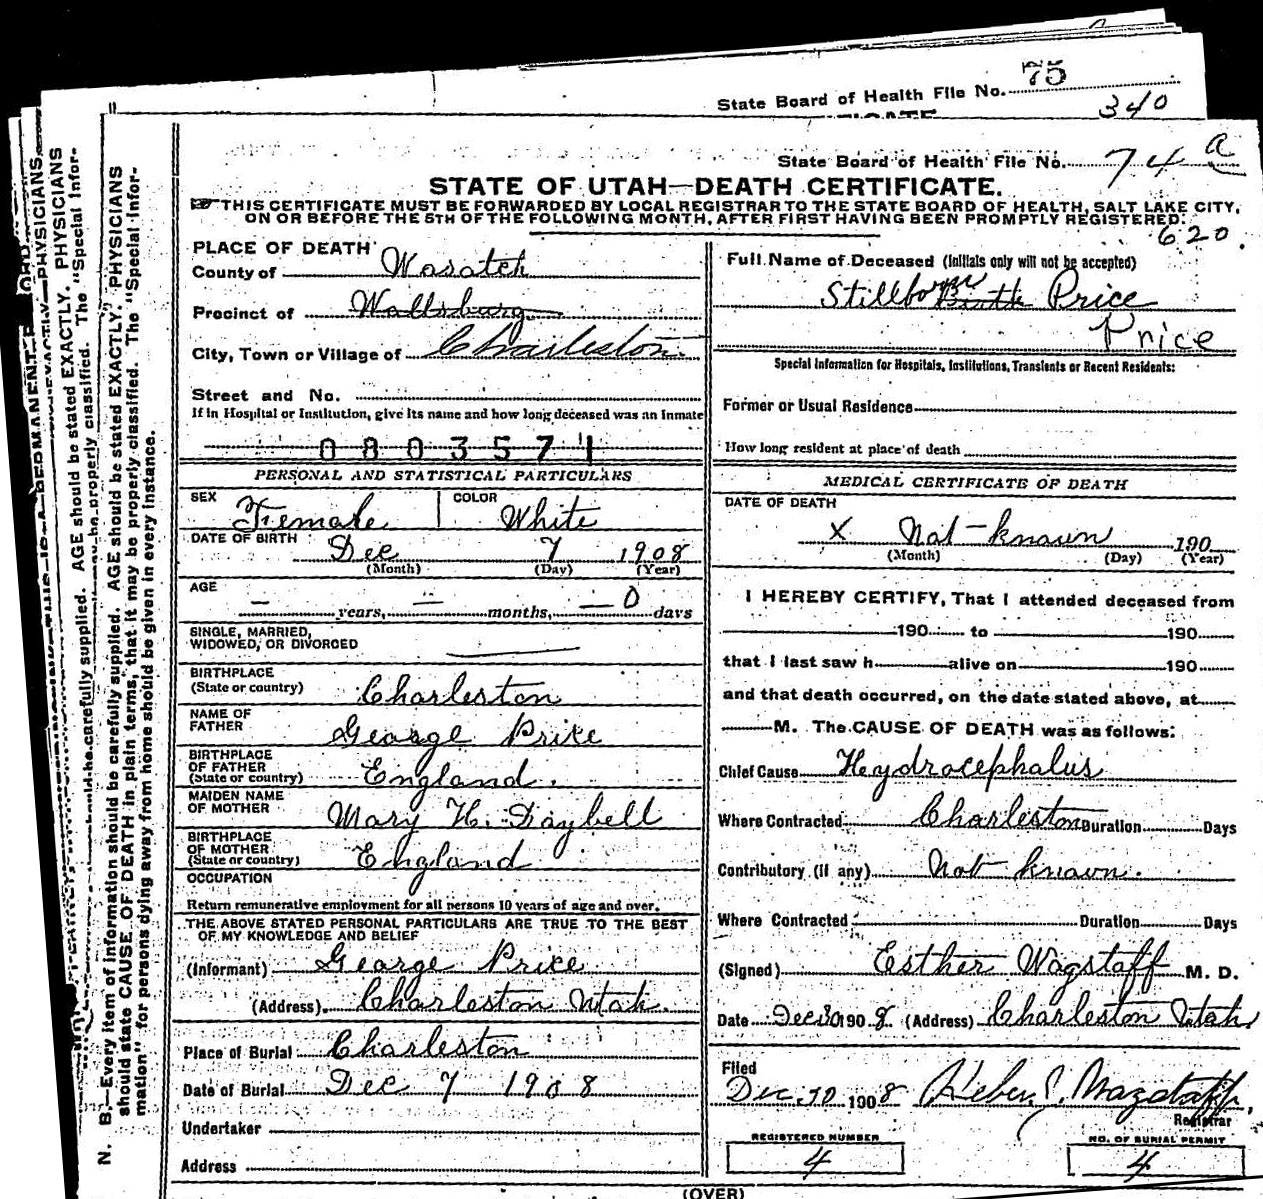 State Board of Health File No. 75
340
State Board of Health File No. 74 a
STATE OF UTAH—DEATH CERTIFICATE.
THIS CERTIFICATE MUST BE FORWARDED BY LOCAL REGISTRAR TO THE STATE BOARD OF HEALTH, SALT LAKE CITY,
ON OR BEFORE THE 5TH OF THE FOLLOWING MONTH, AFTER FIRST HAVING BEEN PROMPTLY REGISTERED.
620.
PLACE OF DEATH
County of Wasatch
Precinct of Wallsburg
City, Town or Village of Charleston
Street and No.
If in Hospital or Institution, give its name and how long deceased was an inmate
0803571
PERSONAL AND STATISTICAL PARTICULARS
SEX Female COLOR White
DATE OF BIRTH Dec 7 1908
(Month) (Day) (Year)
AGE
— years, — months, — 0 days
SINGLE, MARRIED,
WIDOWED, OR DIVORCED —
BIRTHPLACE
(State or country) Charleston
NAME OF
FATHER George Price
BIRTHPLACE
OF FATHER
(State or country) England.
MAIDEN NAME
OF MOTHER Mary H. Daybell
BIRTHPLACE
OF MOTHER
(State or country) England
OCCUPATION
Return remunerative employment for all persons 10 years of age and over.
THE ABOVE STATED PERSONAL PARTICULARS ARE TRUE TO THE BEST
OF MY KNOWLEDGE AND BELIEF
(Informant) George Price
(Address) Charleston Utah.
Place of Burial Charleston
Date of Burial Dec 7 1908
Undertaker
Address
Full Name of Deceased (Initials only will not be accepted)
Stillborn Birth Price
Price
Special Information for Hospitals, Institutions, Transients or Recent Residents:
Former or Usual Residence
How long resident at place of death
MEDICAL CERTIFICATE OF DEATH
DATE OF DEATH
X Not-known 190
(Month) (Day) (Year)
I HEREBY CERTIFY, That I attended deceased from
190 to 190
that I last saw h alive on 190
and that death occurred, on the date stated above, at
M. The CAUSE OF DEATH was as follows:
Chief Cause Hydrocephalus
Where Contracted Charleston Duration Days
Contributory (if any) Not known.
Where Contracted Duration Days
(Signed) Esther Wagstaff M. D.
Date Dec 30 1908 (Address) Charleston Utah
Filed
Dec. 30 1908 Heber J. Wagstaff,
Registrar
REGISTERED NUMBER
4
NO. OF BURIAL PERMIT
4
(OVER)
N. B.—Every item of information should be carefully supplied. AGE should be stated EXACTLY. PHYSICIANS
should state CAUSE OF DEATH in plain terms, that it may be properly classified. The "Special Infor-
mation" for persons dying away from home should be given in every instance.